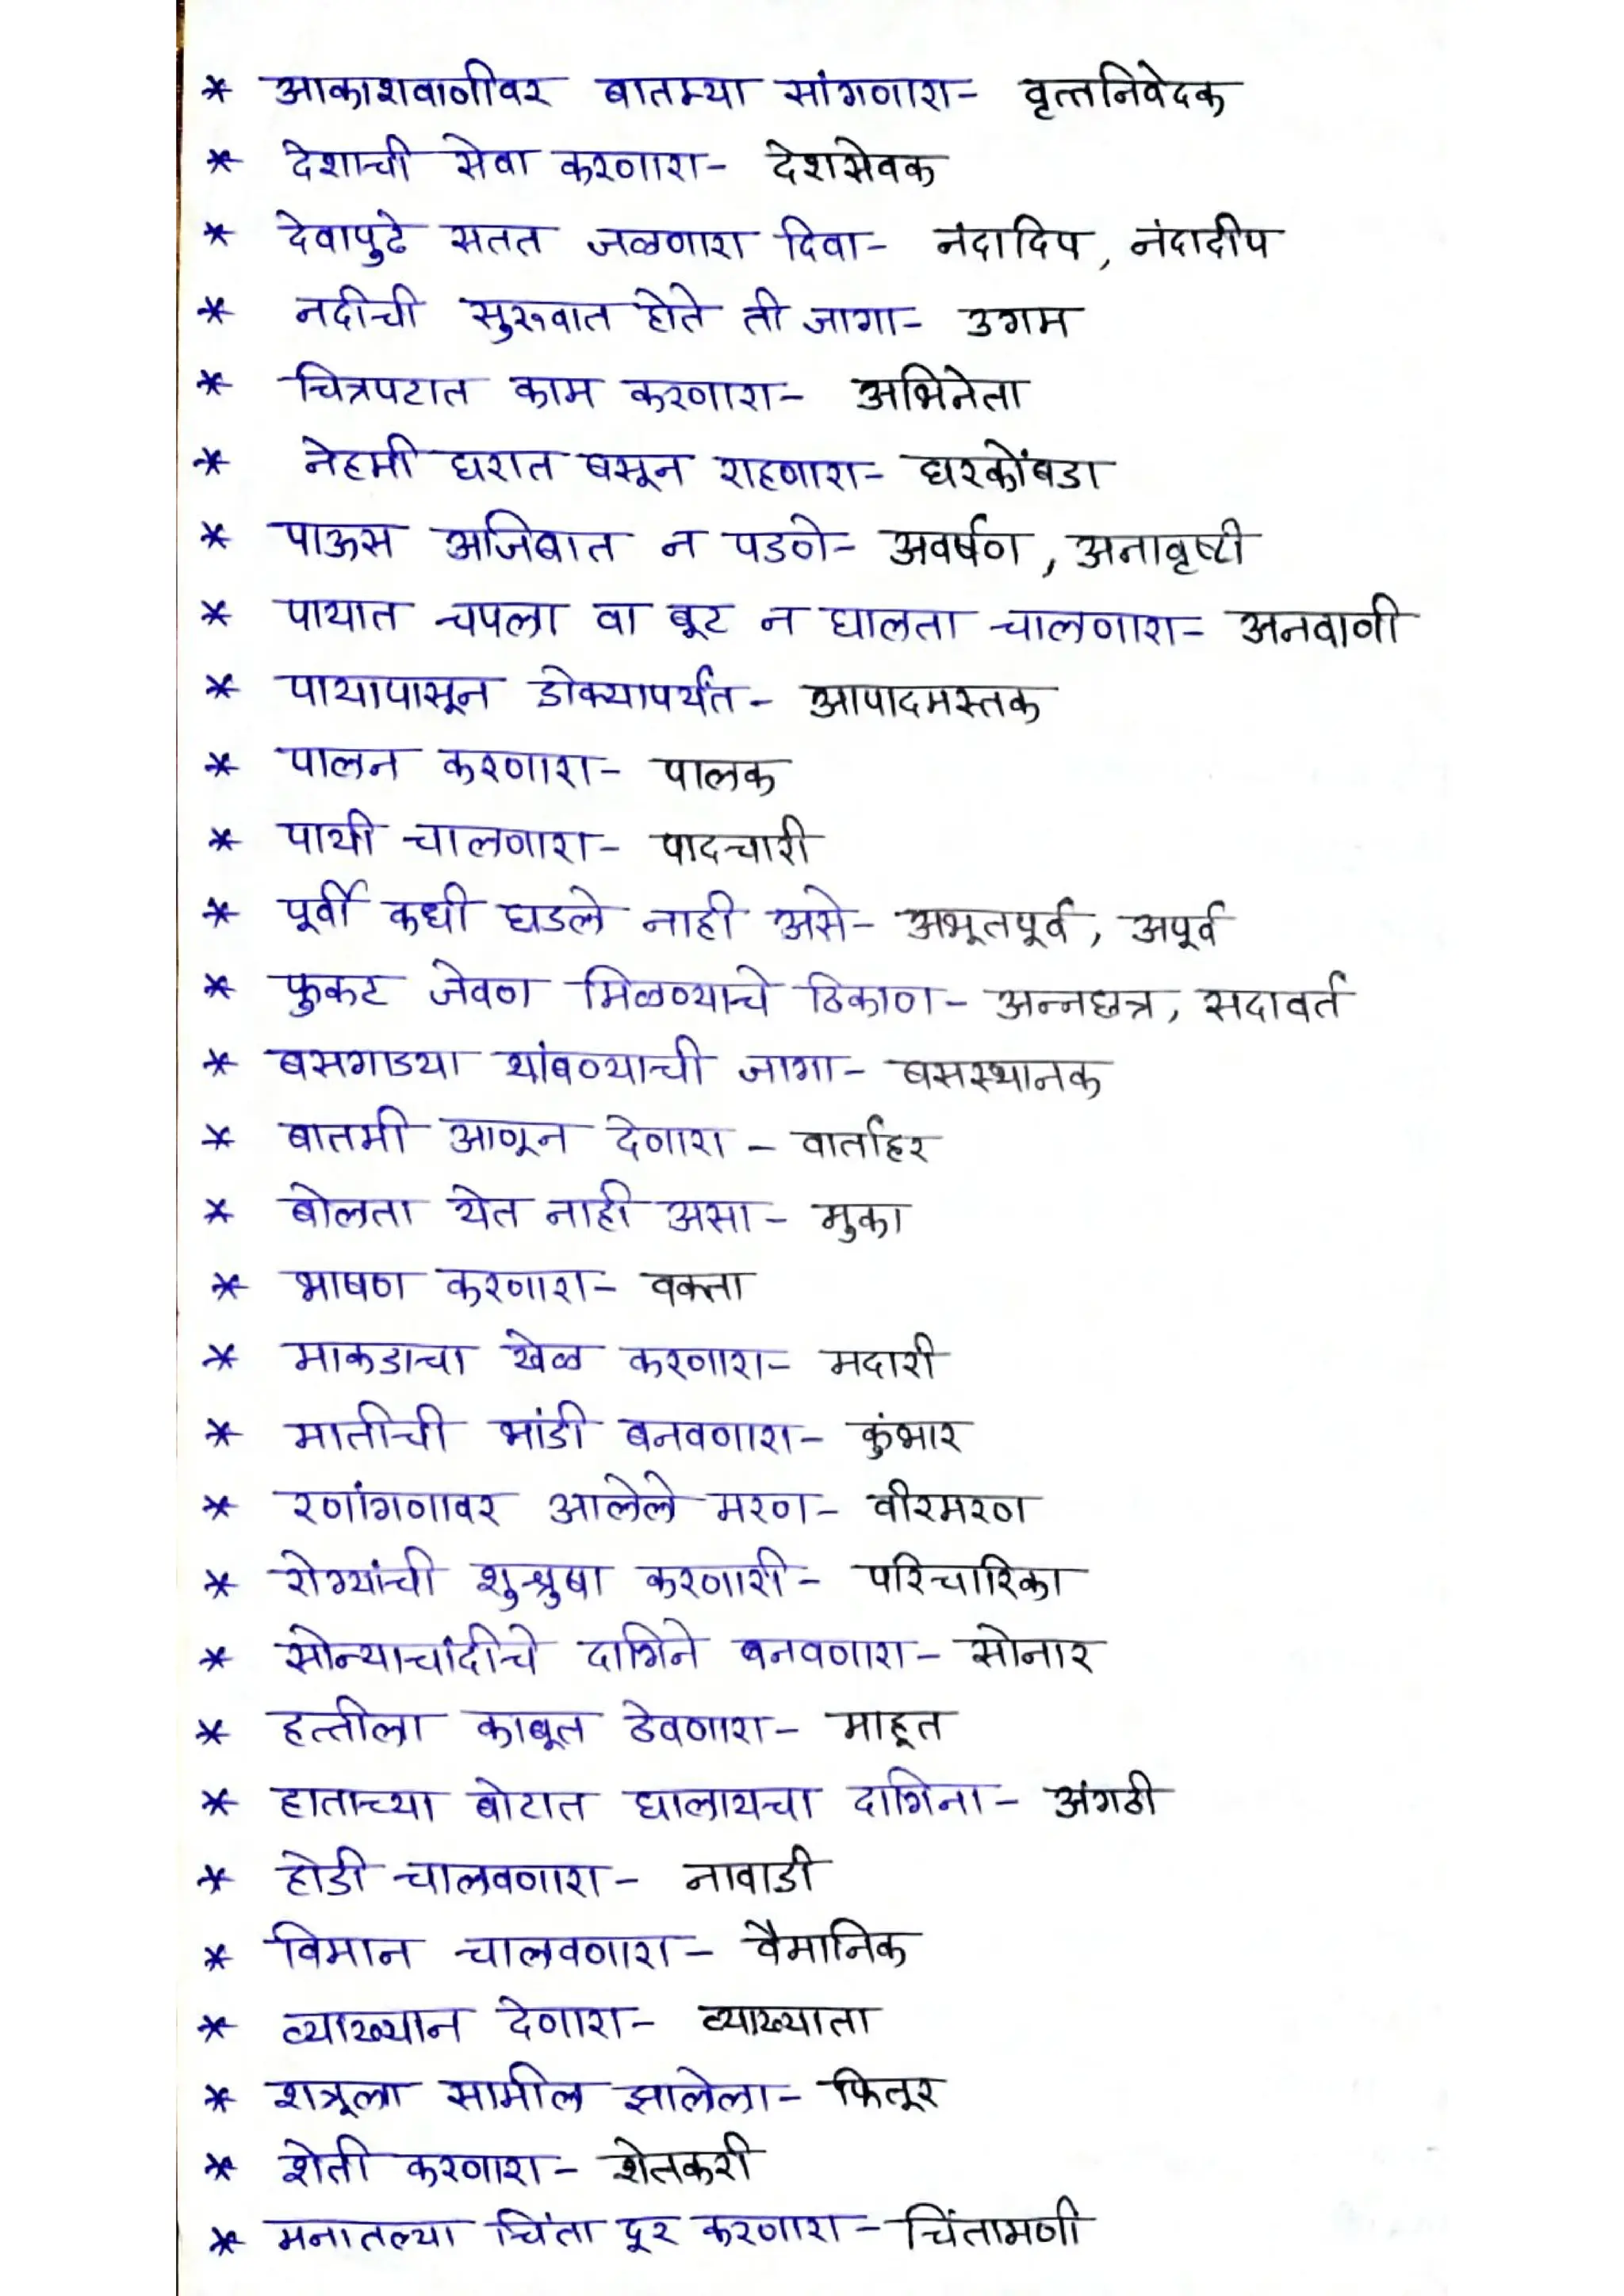 * आकाशवाणीवर बातम्या सांगणारा- वृत्तनिवेदक
* देशाची सेवा करणारा- देशसेवक
* देवापुढे सतत जळणारा दिवा- नंदादिप, नंदादीप
* नदीची सुरुवात होते ती जागा- उगम
* चित्रपटात काम करणारा- अभिनेता
* नेहमी घरात बसून राहणारा- घरकोंबडा
* पाऊस अजिबात न पडणे- अवर्षण, अनावृष्टी
* पायात चपला वा बूट न घालता चालणारा- अनवाणी
* पायापासून डोक्यापर्यंत- आपादमस्तक
* पालन करणारा- पालक
* पायी चालणारा- पादचारी
* पूर्वी कधी घडले नाही असे- अभूतपूर्व, अपूर्व
* फुकट जेवण मिळण्याचे ठिकाण- अन्नछत्र, सदावर्त
* बसगाड्या थांबण्याची जागा- बसस्थानक
* बातमी आणून देणारा - वार्ताहर
* बोलता येत नाही असा- मुका
* भाषण करणारा- वक्ता
* माकडाचा खेळ करणारा- मदारी
* मातीची भांडी बनवणारा- कुंभार
* रणांगणावर आलेले मरण- वीरमरण
* रोग्यांची शुश्रुषा करणारी- परिचारिका
* सोन्याचांदीचे दागिने बनवणारा- सोनार
* हत्तीला काबूत ठेवणारा- माहूत
* हाताच्या बोटात घालायचा दागिना- अंगठी
* होडी चालवणारा- नावाडी
* विमान चालवणारा- वैमानिक
* व्याख्यान देणारा- व्याख्याता
* शत्रूला सामील झालेला- फितूर
* शेती करणारा- शेतकरी
* मनातल्या चिंता दूर करणारा- चिंतामणी